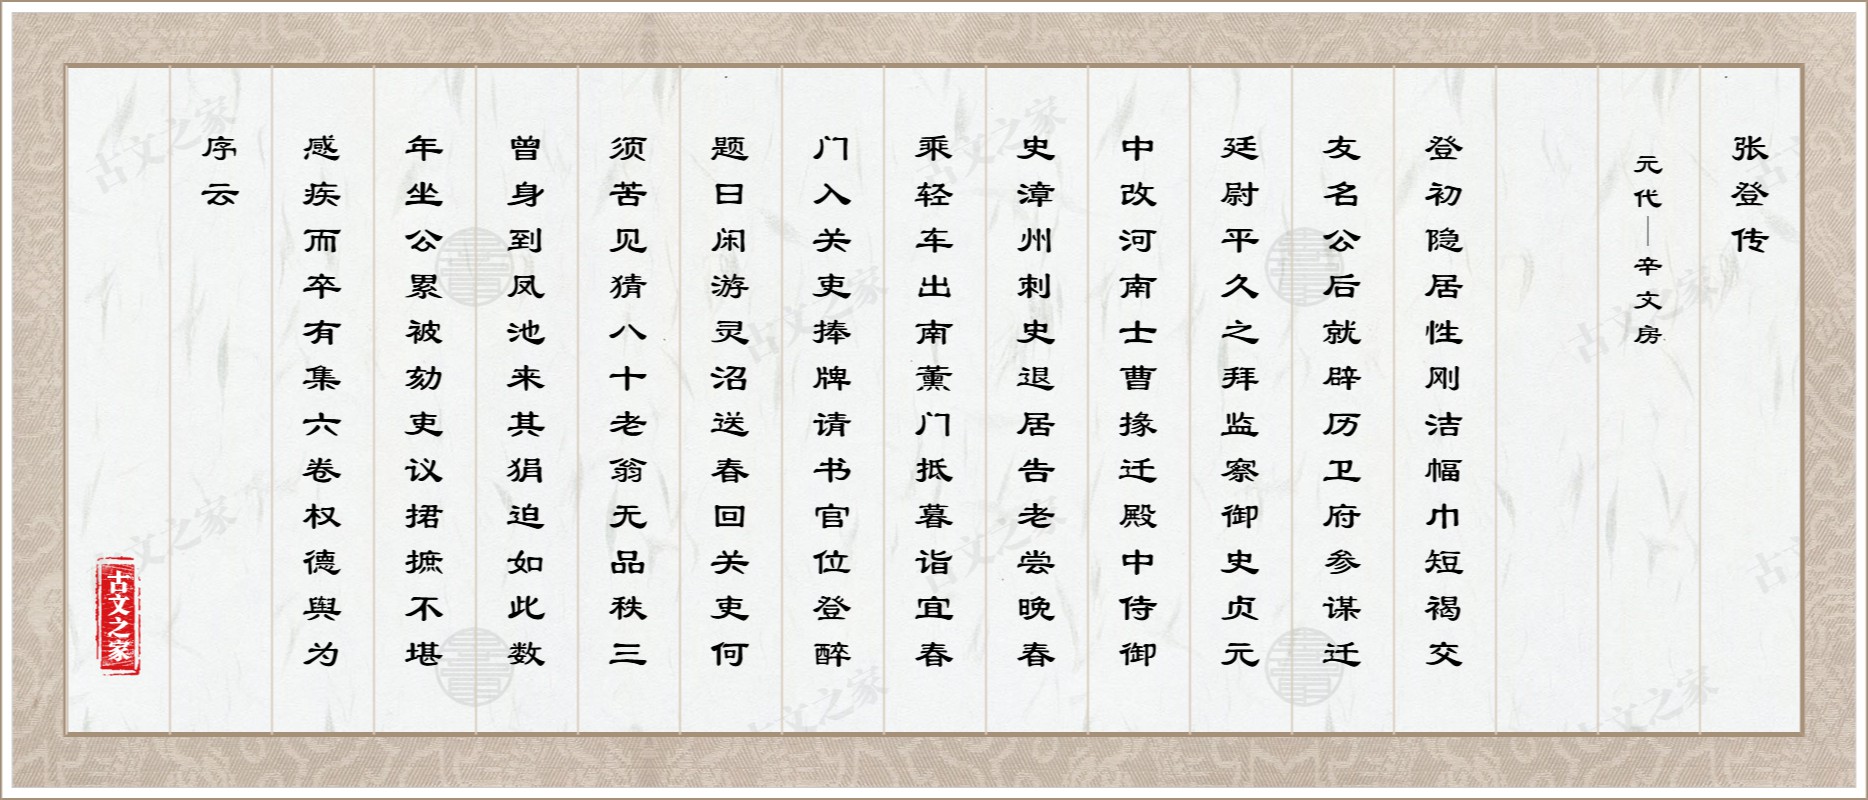 张登传
元代｜辛文房
登初隐居性刚洁幅巾短褐交
友名公后就辟历卫府参谋迁
廷尉平久之拜监察御史贞元
中改河南士曹掾迁殿中侍御
史漳州刺史退居告老尝晚春
乘轻车出南薰门抵暮诣宜春
门入关吏捧牌请书官位登醉
题曰闲游灵沼送春回关吏何
须苦见猜八十老翁无品秩三
曾身到凤池来其狷迫如此数
年坐公累被劾吏议捃摭不堪
感疾而卒有集六卷权德舆为
序云
古文之家